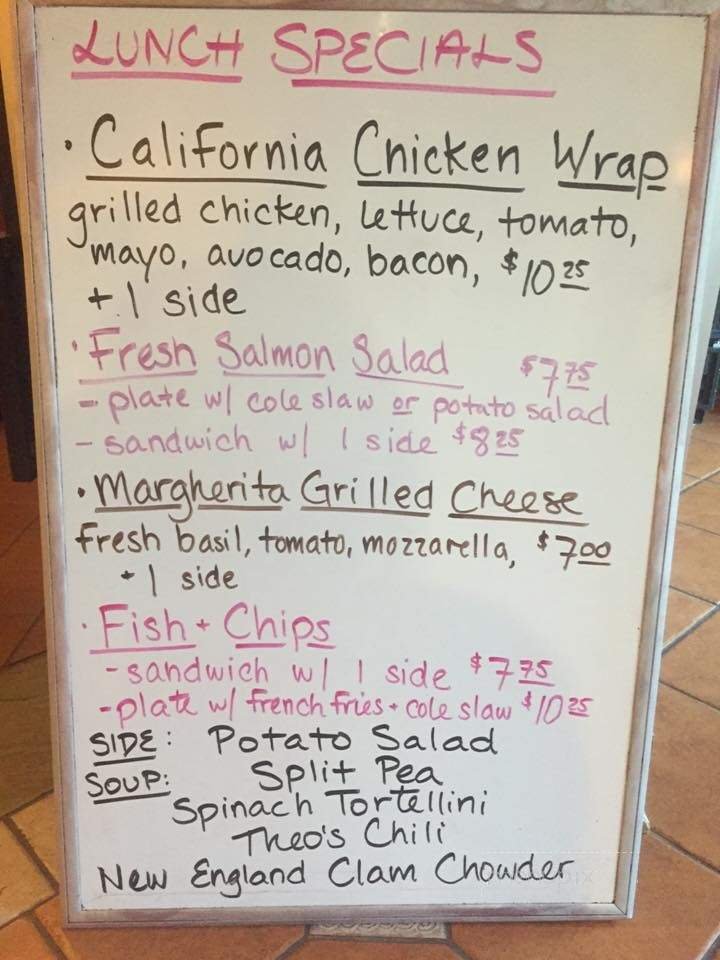 LUNCH SPECIALS
· California Chicken Wrap
grilled chicken, lettuce, tomato,
mayo, avocado, bacon, $10 25
+ 1 side
· Fresh Salmon Salad $7 75
- plate w/ cole slaw or potato salad
- sandwich w/ 1 side $8 25
· Margherita Grilled Cheese
fresh basil, tomato, mozzarella, $7 00
+ 1 side
· Fish + Chips
- sandwich w/ 1 side $7 75
- plate w/ french fries + cole slaw $10 25
SIDE: Potato Salad
SOUP: Split Pea
Spinach Tortellini
Theo's Chili
New England Clam Chowder